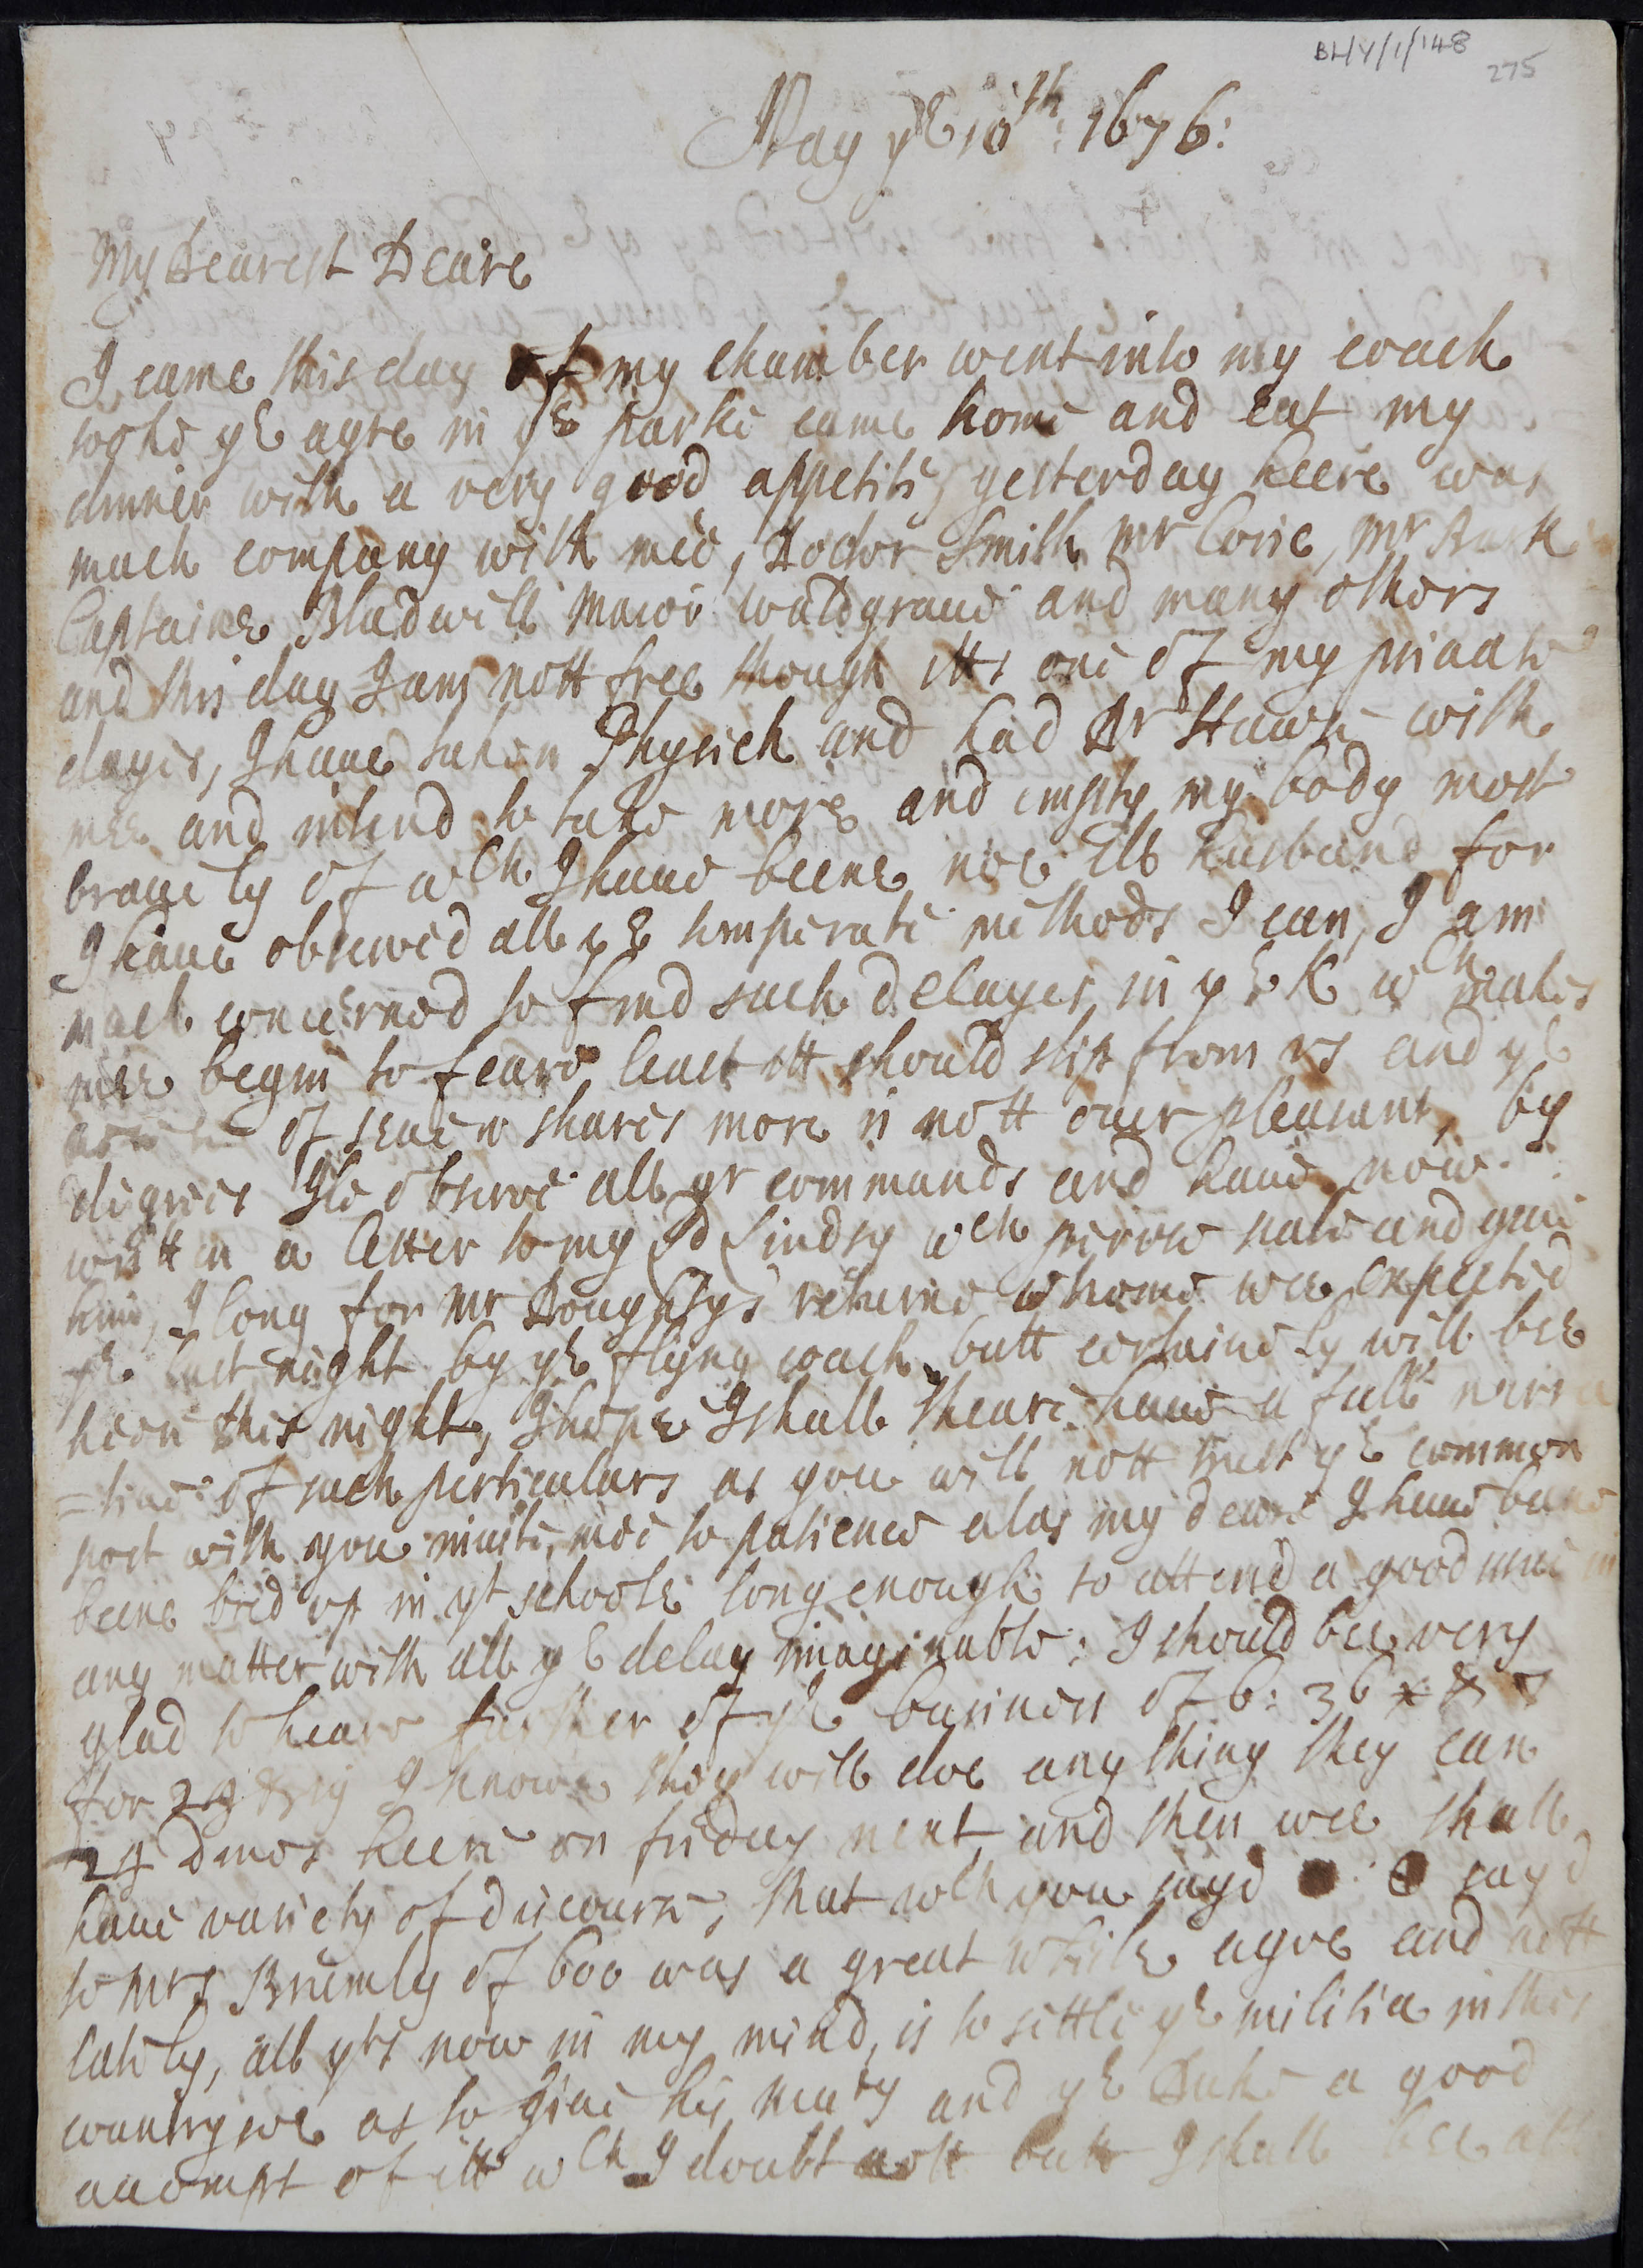 BL/Y/1/148
275
May ye 10th: 1676:
My Dearest Deare
I came this day of my chamber went into my coach
tooke ye ayre in ye parke came home and eat my
dinner with a very good appetite, yesterday heere was
much company with mee, Doctor Smith Mr Corie, Mr
Captaine Bladwell Maior Waldgraue and many others
and this day I am nott free though itts one of my priuate
dayes, I haue taken Physick and had Dr Hawk with
mee and intend to take more and empty my body most
brauely of wch I haue beene noe Ill husband for
I haue obserued all ye temperate methods I can, I am
much concerned to find such delayes in ye K wch makes
mee begin to feare least itt should slip from vs and ye
of seauen shares more is nott ouer pleasant, by
degrees Ile obserue all yr commands and haue now
written a letter to my Ld Lindsy wch pervse seale and giue
him, I long for Mr Doughtys returne whome wee expected
ye last night by ye flying coach butt certainely will bee
heere this night, I hope I shall theare haue a full narra
=tiue of such perticulars as you will nott trust ye common
post with you inuite mee to patience alas my deare I haue
beene bred vp in yt schoole long enough to attend a good
any matter with all ye delay imaginable: I should bee very
glad to heare further of ye businesse of 6: 36
for 24 I know they will doe any thing they can
24 dines heere on friday next, and then wee shall
haue variety of discourse, that wch you sayd sayd
to Mrs Brumly of 600 was a great while agoe and nott
lately, all yts now in my mind, is to settle ye militia in this
country soe as to giue his Maty and ye Duke a good
accompt of itt wch I doubt nott butt I shall bee